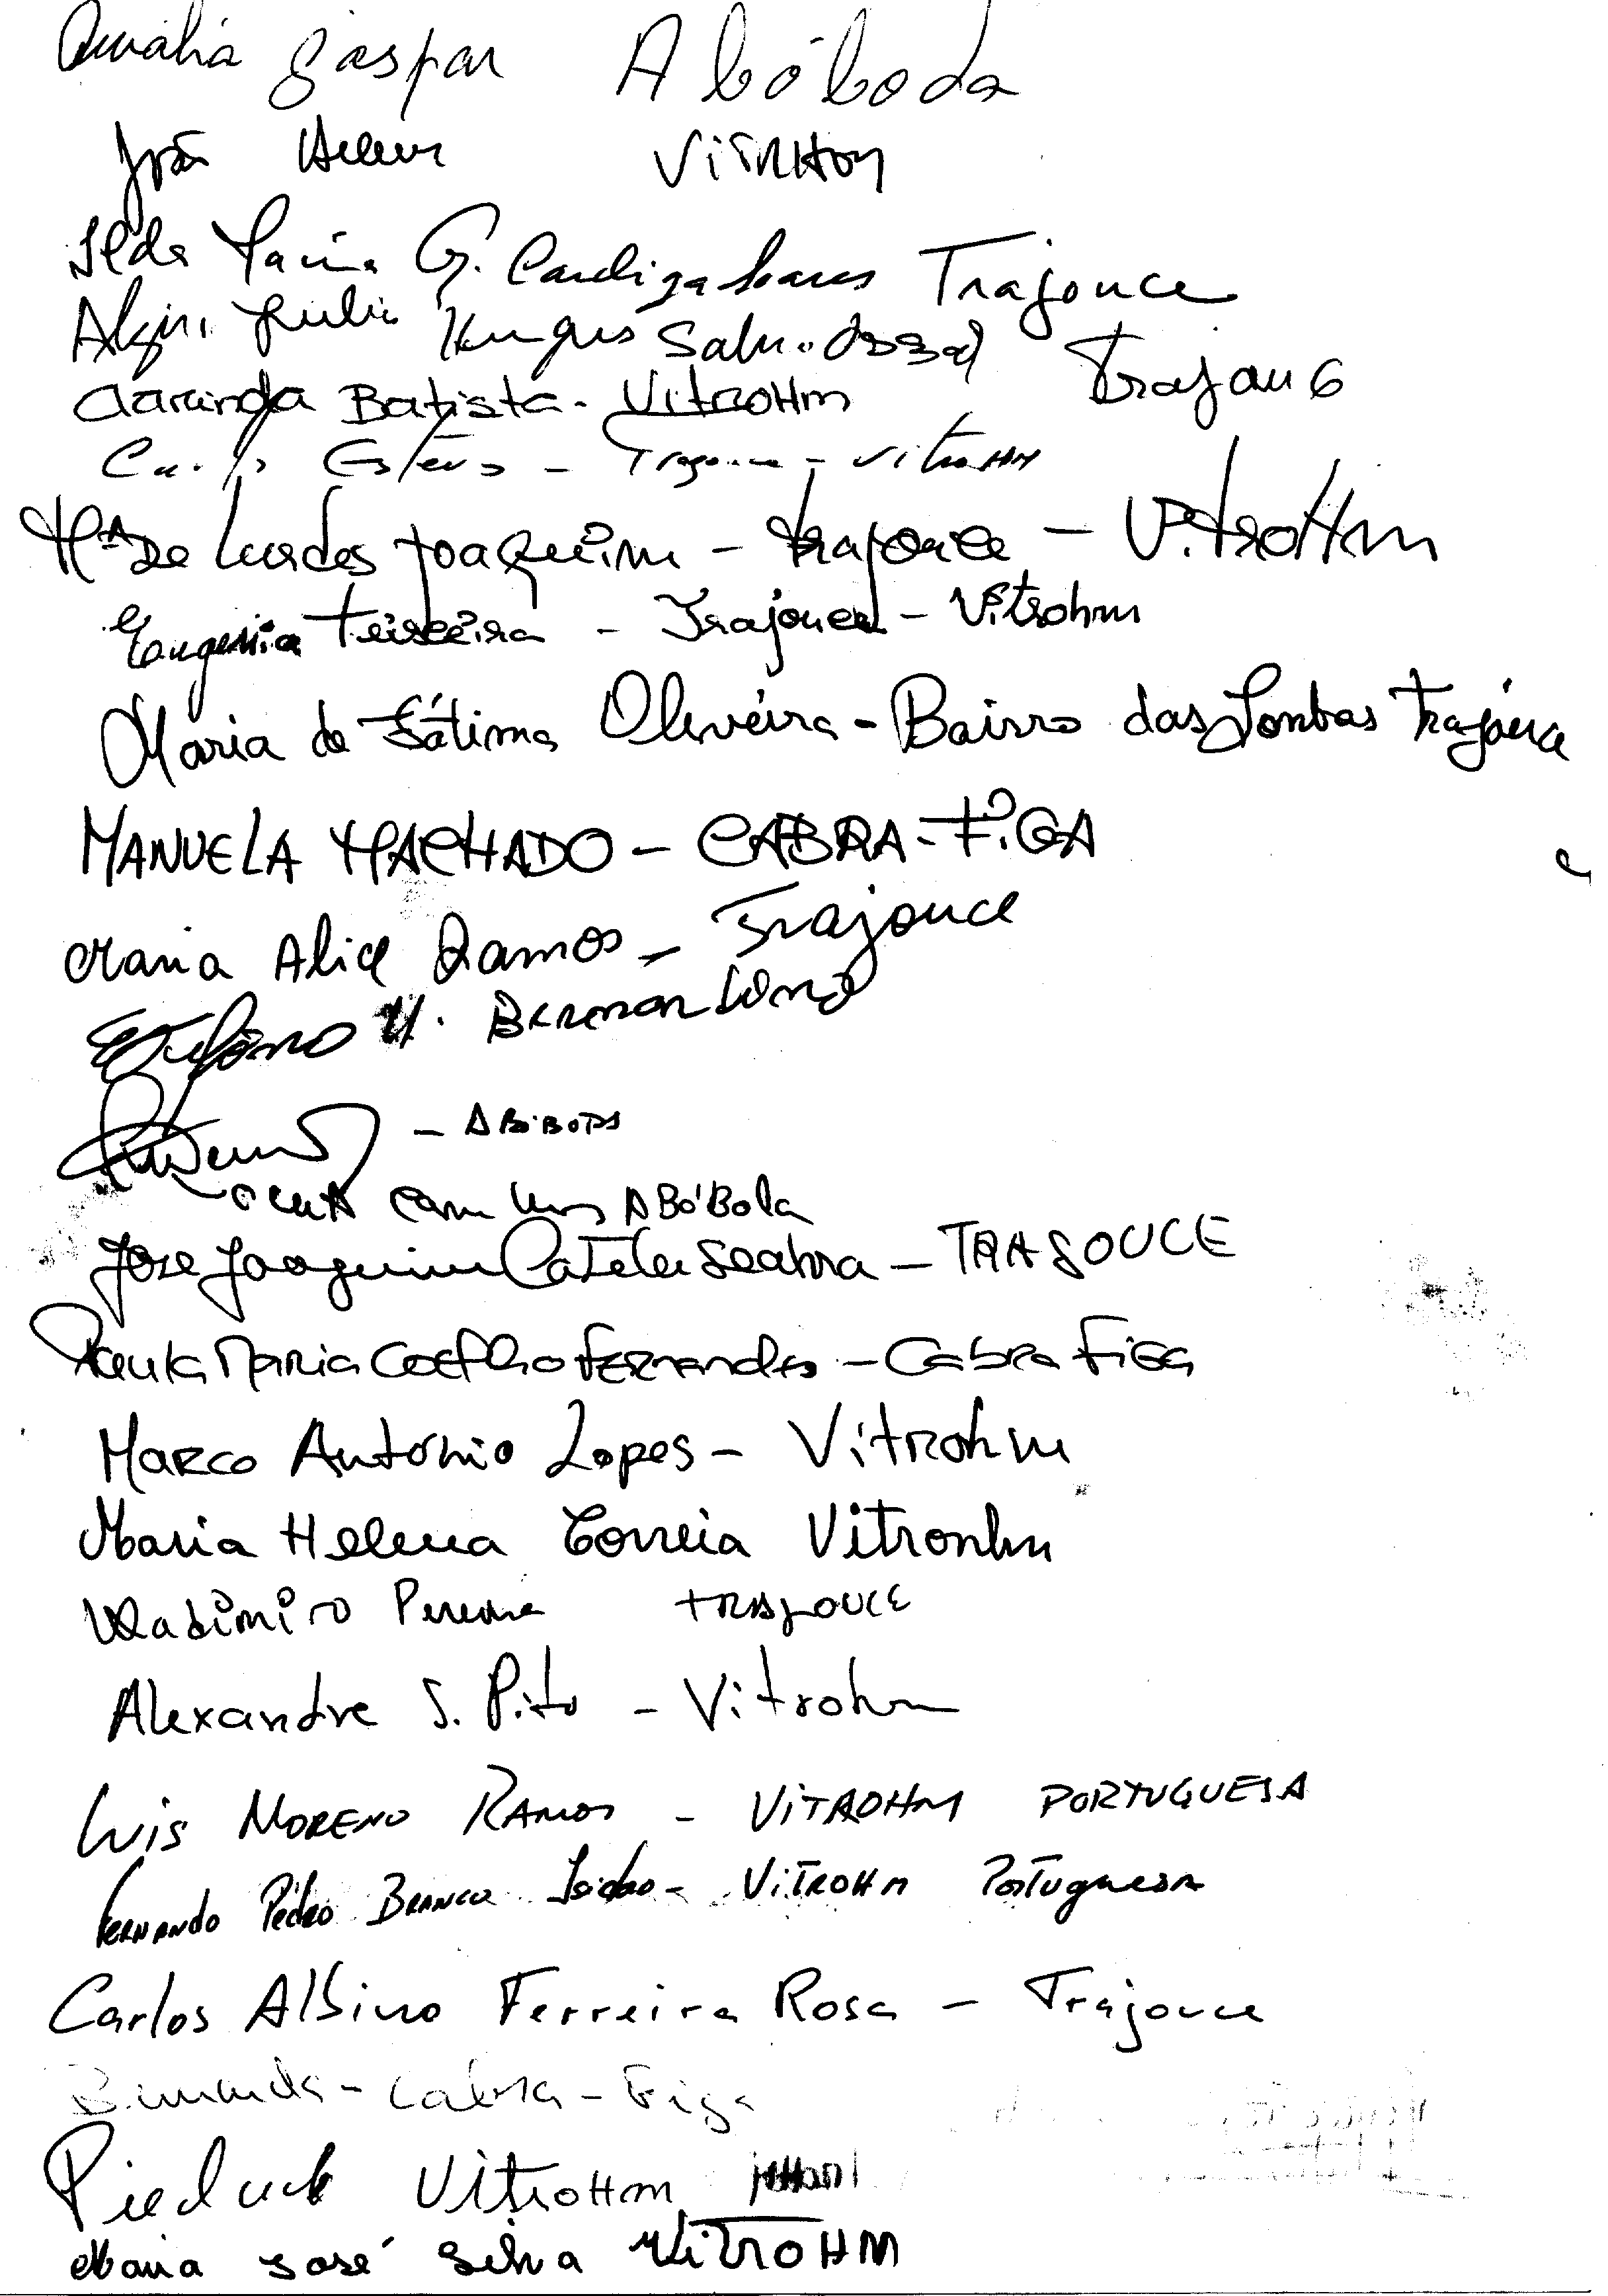 Amália Gaspar Abóboda
João Vitrohm
Ilda Maria G. Cardiga Soares Trajouce
Júlio
Clarinda Batista - Vitrohm
Carlos Esteves - Trajouce - Vitrohm
Mª De Lurdes Joaquim - Trajouce - Vitrohm
Eugenia Teixeira - Trajouce - Vitrohm
Maria de Fátima Oliveira - Bairro das Lombas Trajouce
MANUELA MACHADO - CABRA-FIGA
Maria Alice Ramos - Trajouce
M. Bernardino
- ABÓBODA
ABóBoda
José Joaquim Seabra - TRAJOUCE
Paula Maria Coelho Fernandes - Cabra Figa
Marco António Lopes - Vitrohm
Maria Helena Correia Vitronhm
Vladimiro Pereira TRAJOUCE
Alexandre S. Pito - Vitrohm
Luis MORENO RAMOS - VITROHM PORTUGUESA
Fernando Pedro Branco Isidoro - VITROHM Portuguesa
Carlos Albino Ferreira Rosa - Trajouce
- Cabra - Figa
VitroHm
Maria José Silva VitroHM